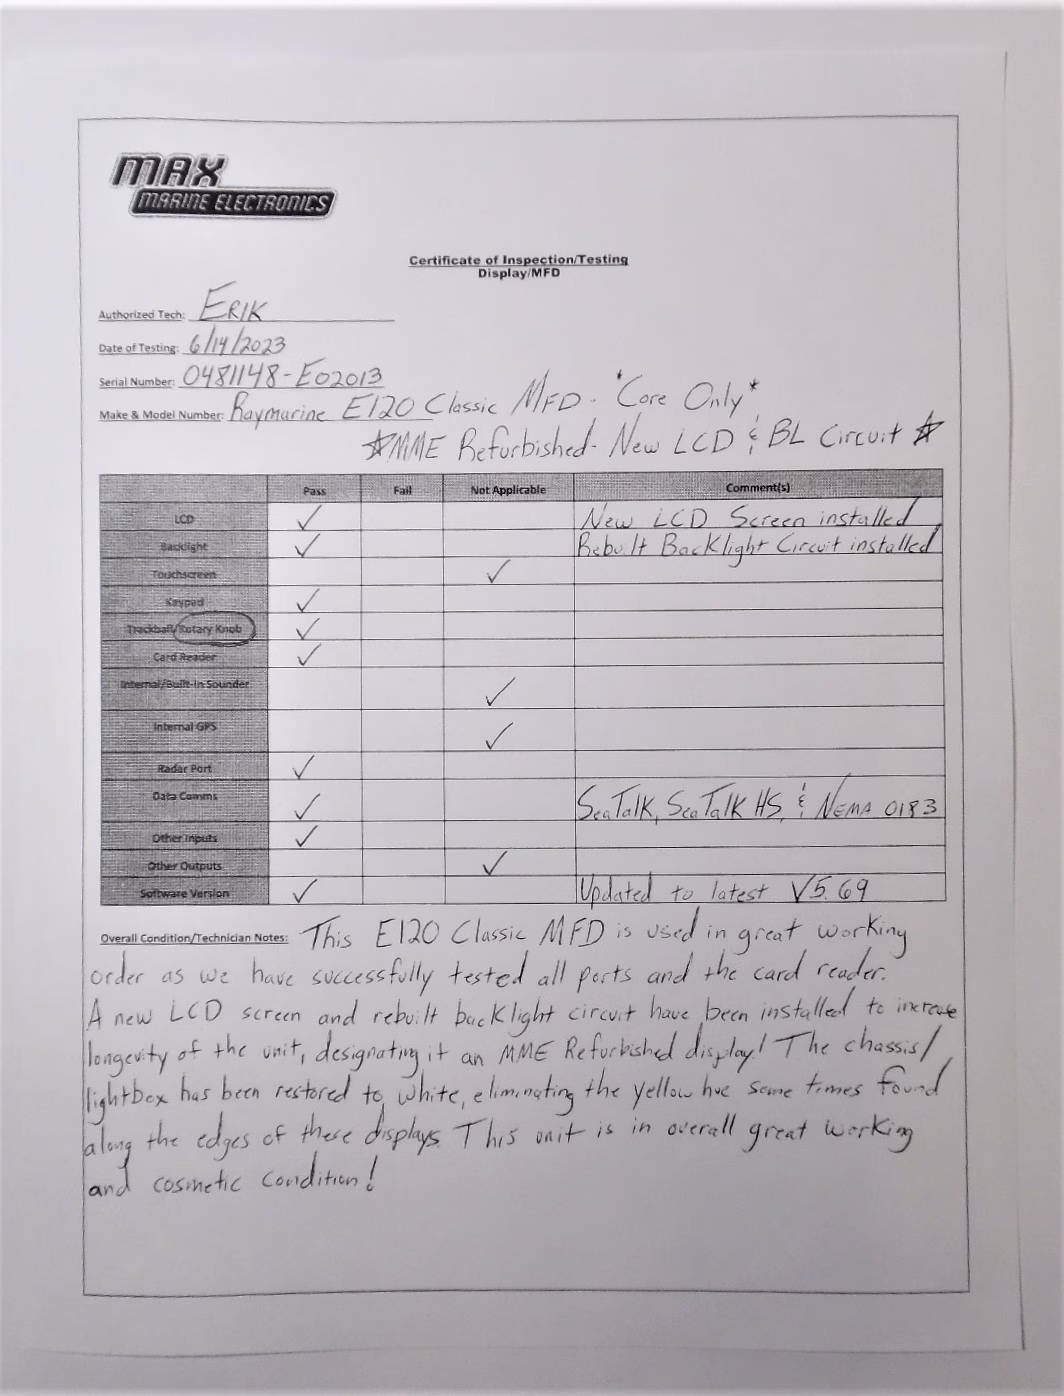 MAX
MARINE ELECTRONICS
Certificate of Inspection/Testing
Display/MFD
Authorized Tech: ERIK
Date of Testing: 6/14/2023
Serial Number: 0481148-E02013
Make & Model Number: Raymarine E120 Classic MFD - "Core Only"
☆MME Refurbished- New LCD & BL Circuit☆
Pass Fail Not Applicable Comment(s)
LCD ✓ New LCD Screen installed
Backlight ✓ Rebuilt Backlight Circuit installed
Touchscreen ✓
Keypad ✓
Trackball/Rotary Knob ✓
Card Reader ✓
Internal/Built-in Sounder ✓
Internal GPS ✓
Radar Port ✓
Data Comms ✓ SeaTalk, SeaTalk HS, & NEMA 0183
Other Inputs ✓
Other Outputs ✓
Software Version ✓ Updated to latest V5.69
Overall Condition/Technician Notes: This E120 Classic MFD is used in great working
order as we have successfully tested all ports and the card reader.
A new LCD screen and rebuilt backlight circuit have been installed to increase
longevity of the unit, designating it an MME Refurbished display! The chassis/
lightbox has been restored to white, eliminating the yellow hue some times found
along the edges of these displays. This unit is in overall great working
and cosmetic condition!